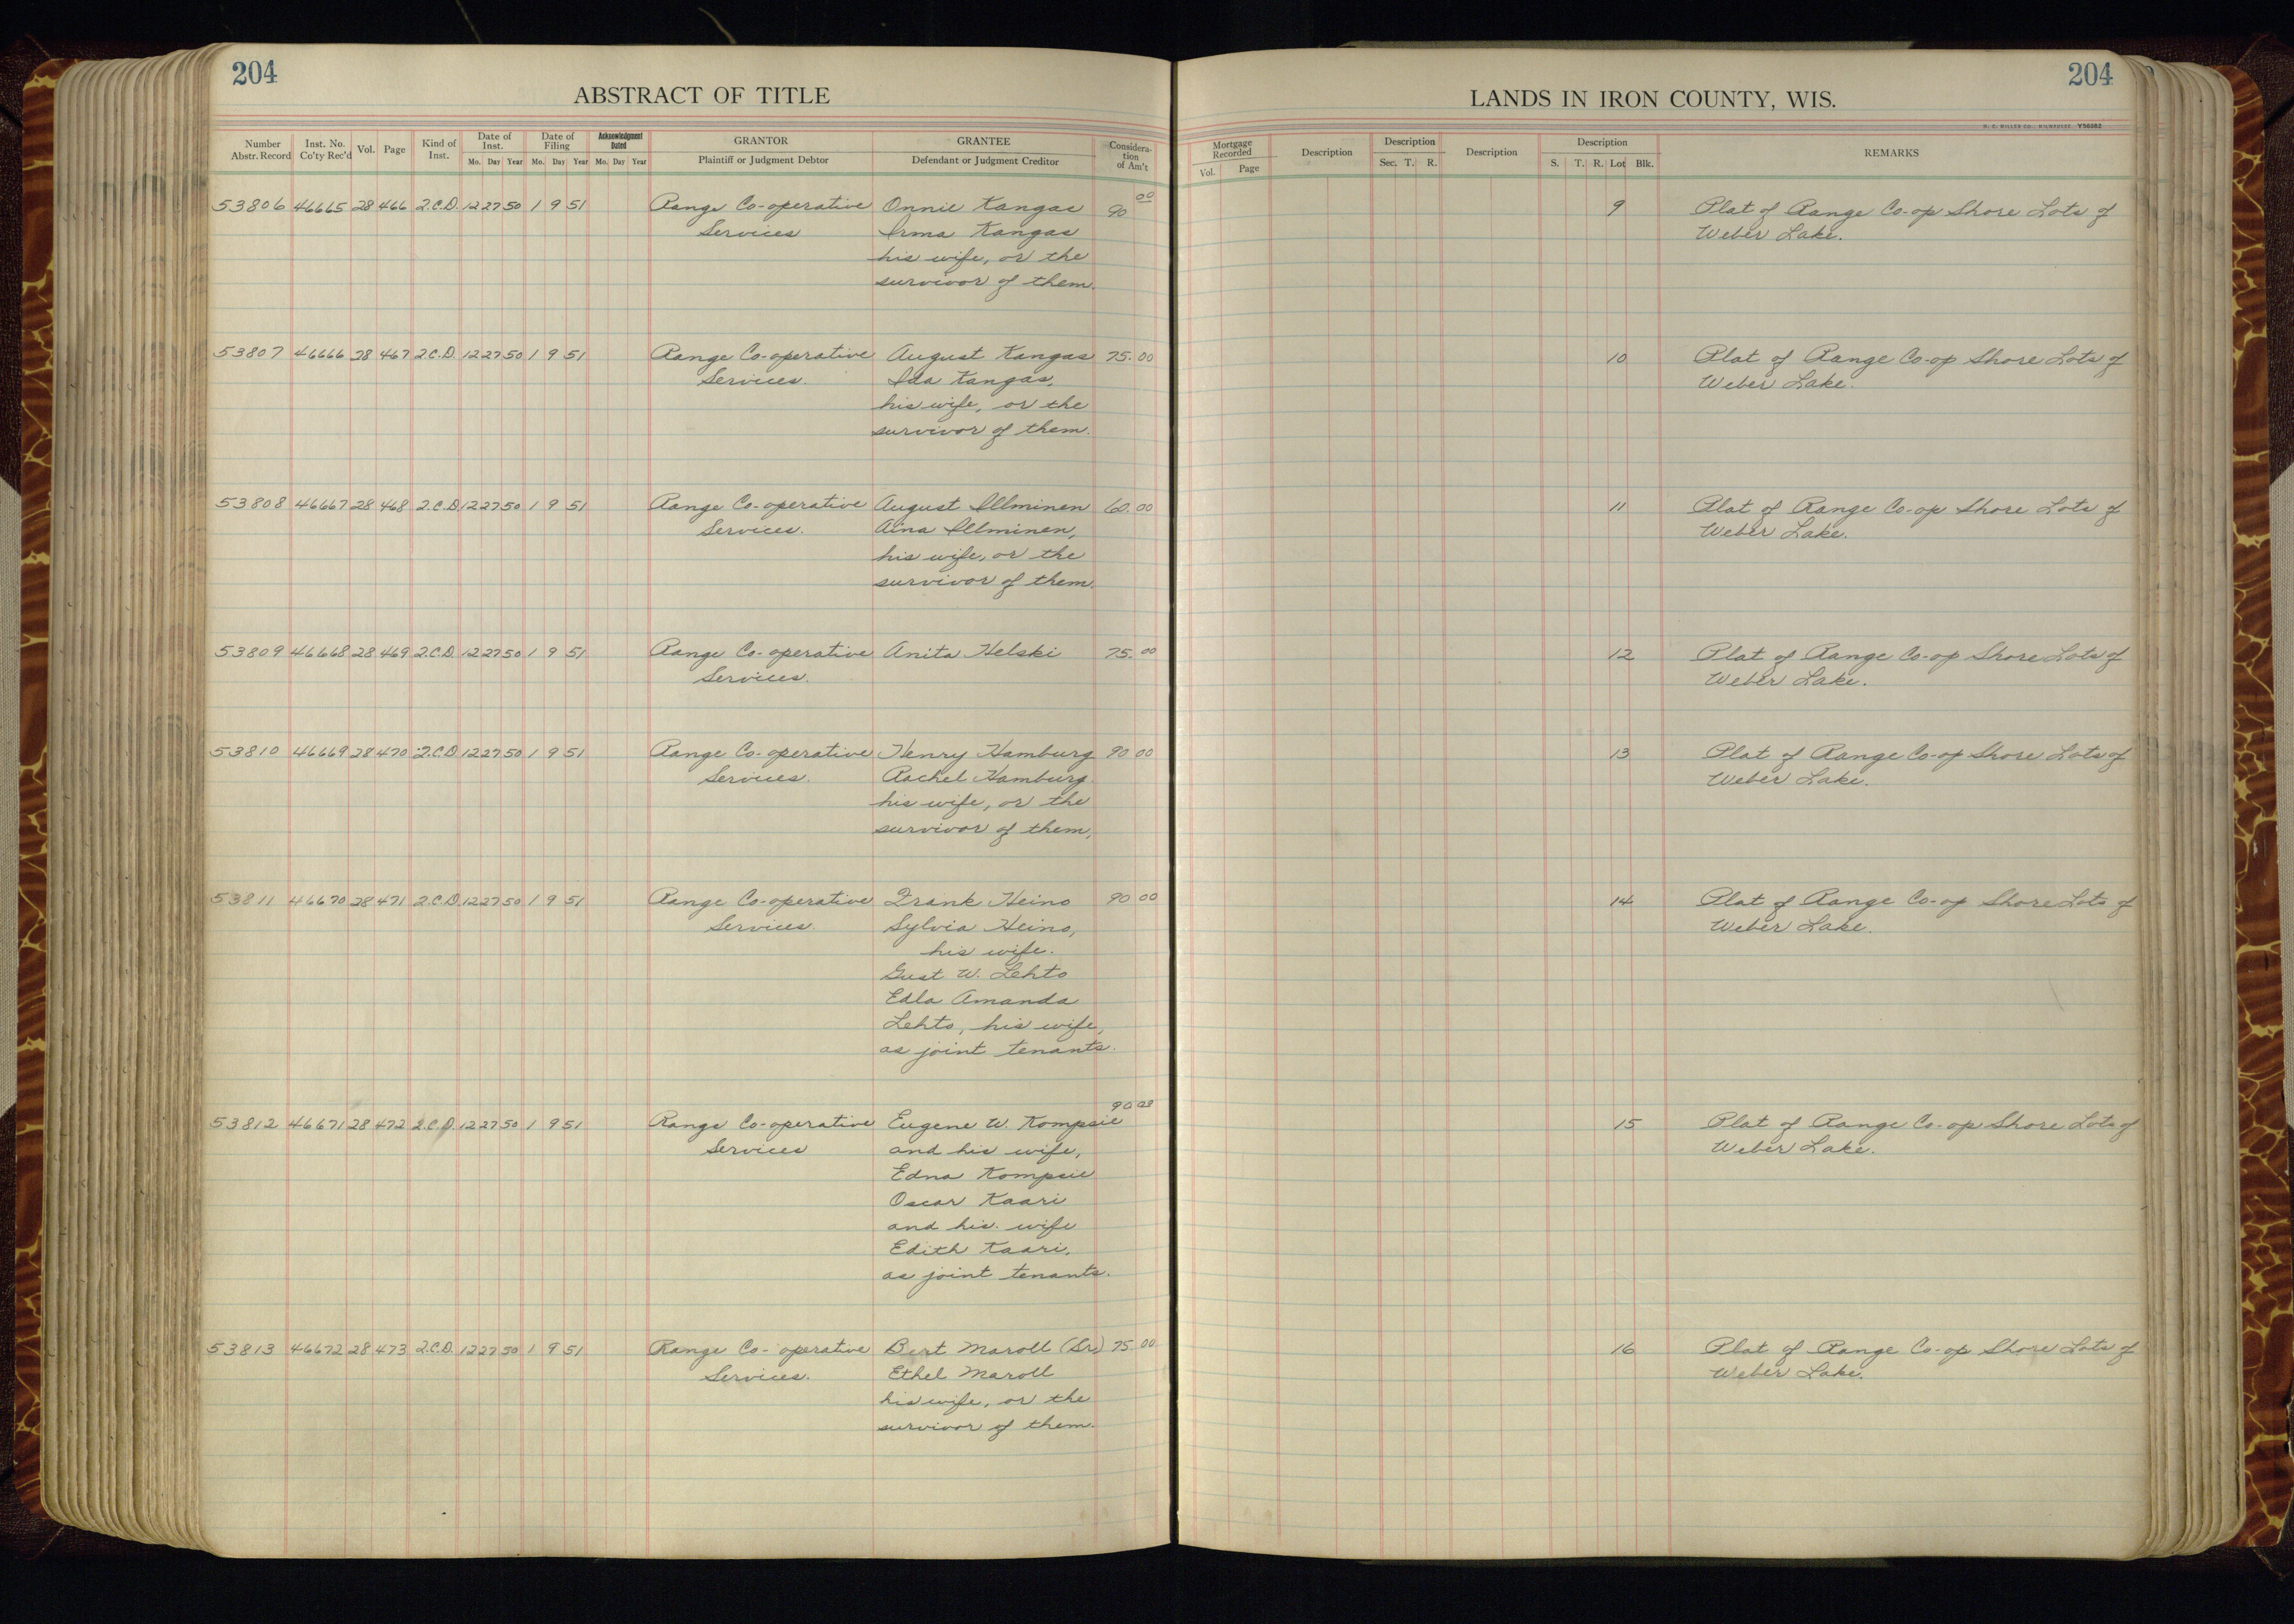 204
ABSTRACT OF TITLE
Number Abstr. Record Inst. No. Co'ty Rec'd Vol. Page Kind of Inst. Date of Inst. Mo. Day Year Date of Filing Mo. Day Year Acknowledgment Dated Mo. Day Year GRANTOR Plaintiff or Judgment Debtor GRANTEE Defendant or Judgment Creditor Considera-tion of Am't
53806 46665 28 466 2.C.D. 12 27 50 1 9 51 Range Co-operative Onnie Kangas 90 00
Services Irma Kangas
his wife, or the
survivor of them.
53807 46666 28 467 2.C.D. 12 27 50 1 9 51 Range Co-operative August Kangas 75.00
Services. Ida Kangas,
his wife, or the
survivor of them.
53808 46667 28 468 2.C.D. 12 27 50 1 9 51 Range Co-operative August Illminen 60.00
Services. Aina Illminen,
his wife, or the
survivor of them.
53809 46668 28 469 2.C.D. 12 27 50 1 9 51 Range Co-operative Anita Helski 75.00
Services.
53810 46669 28 470 2.C.D. 12 27 50 1 9 51 Range Co-operative Henry Hamburg 90 00
Services. Rachel Hamburg
his wife, or the
survivor of them.
53811 46670 28 471 2.C.D. 12 27 50 1 9 51 Range Co-operative Frank Heino 90 00
Services. Sylvia Heino,
his wife.
Gust W. Lehto
Edla Amanda
Lehto, his wife,
as joint tenants.
53812 46671 28 472 2.C.D. 12 27 50 1 9 51 Range Co-operative Eugene W. Kompsie 90
Services and his wife,
Edna Kompsie
Oscar Kaari
and his wife
Edith Kaari,
as joint tenants.
53813 46672 28 473 2.C.D. 12 27 50 1 9 51 Range Co-operative Bert Maroll (Sr.) 75.00
Services. Ethel Maroll
his wife, or the
survivor of them.
204
LANDS IN IRON COUNTY, WIS.
H. C. MILLER CO., MILWAUKEE Y56082
Mortgage Recorded Vol. Page Description Description Sec. T. R. Description Description S. T. R. Lot Blk. REMARKS
9 Plat of Range Co-op Shore Lots of
Weber Lake.
10 Plat of Range Co-op Shore Lots of
Weber Lake.
11 Plat of Range Co-op Shore Lots of
Weber Lake.
12 Plat of Range Co-op Shore Lots of
Weber Lake.
13 Plat of Range Co-op Shore Lots of
Weber Lake.
14 Plat of Range Co-op Shore Lots of
Weber Lake.
15 Plat of Range Co-op Shore Lots of
Weber Lake.
16 Plat of Range Co-op Shore Lots of
Weber Lake.